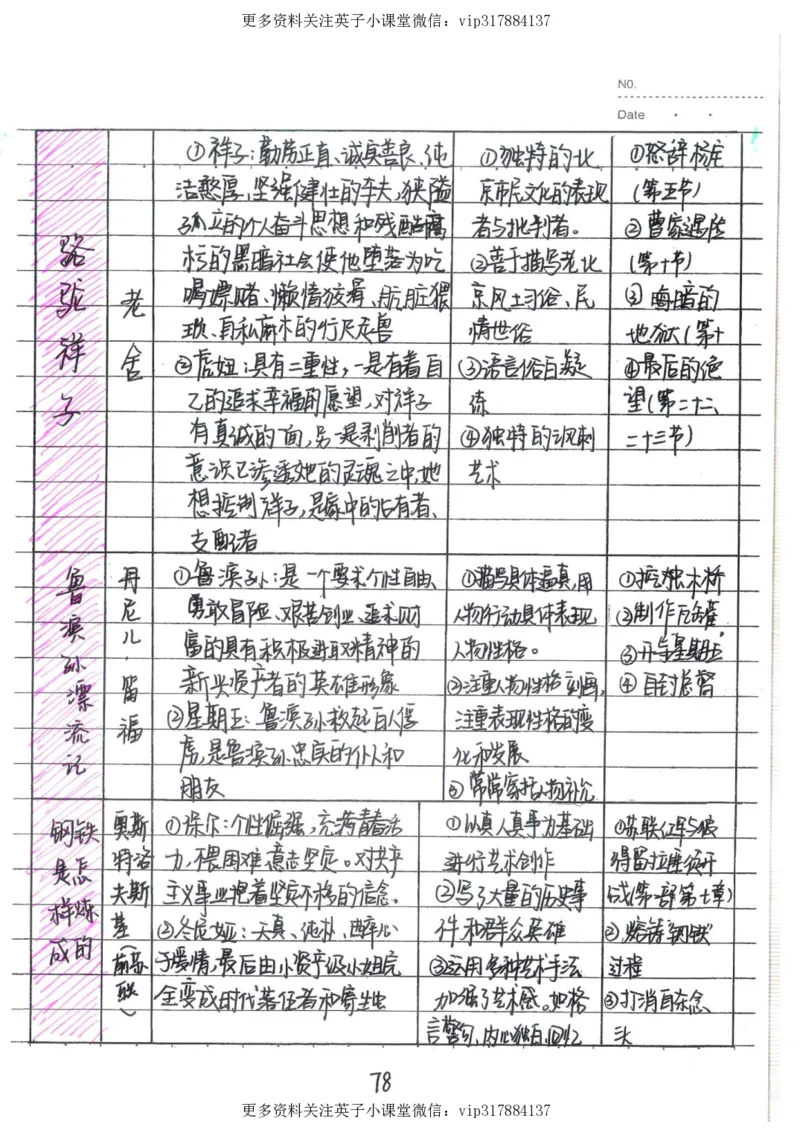 更多资料关注英子小课堂微信：vip317884137
N0.
Date
骆驼祥子
老舍
①祥子：勤劳正直、诚真善良、纯
洁憨厚，坚强健壮的车夫，狭隘
孤立的个人奋斗思想和残酷腐
朽的黑暗社会使他堕落为吃
喝嫖赌、懒惰狡猾、肮脏猥
琐、自私麻木的行尸走兽
②虎妞：具有二重性，一是有着自
己的追求幸福的愿望，对祥子
有真诚的一面，另一是剥削者的
意识已渗透她的灵魂之中，她
想控制祥子，是家中的占有者、
支配者
①独特的北
京市民文化的表现
者与批判者。
②善于描写老北
京风土习俗、民
情世俗
③语言俗白凝
练
④独特的讽刺
艺术
①怒辞杨宅
（第五节）
②曹家遇险
（第十节）
③晦暗的
地狱（第十
④最后的绝
望（第二十二
二十三节）
鲁滨孙漂流记
丹尼尔·笛福
①鲁滨孙：是一个要求个性自由、
勇敢冒险、艰苦创业、追求财
富的具有积极进取精神的
新兴资产者的英雄形象
②星期五：鲁滨孙救起的俘
虏，是鲁滨孙忠实的仆人和
朋友
①描写具体逼真，用
人物行动具体表现
人物性格。
②注重人物性格刻画，
注重表现性格的变
化和发展
③常常穿插人物补允
①挖独木桥
②制作瓦罐
③开与星期五
④自封总督
钢铁是怎样炼成的
奥斯特洛夫斯基（前苏联）
①保尔：个性倔强，充满青春活
力，不畏困难，意志坚定。对共产
主义事业抱着坚定不移的信念。
②冬尼娅：天真、纯朴、醉心
于爱情，最后由小资产级小姐完
全变成时代落伍者和寄生虫
①以真人真事为基础
进行艺术创作
②写了大量的历史事
件和群众英雄
③运用多种艺术手法
加强了艺术感。如格
言警句，内心独白，回忆
①苏联红军与狼
得留拉
成（第一部第七章）
②熔铸钢铁
过程
③打消自杀念
头
78
更多资料关注英子小课堂微信：vip317884137